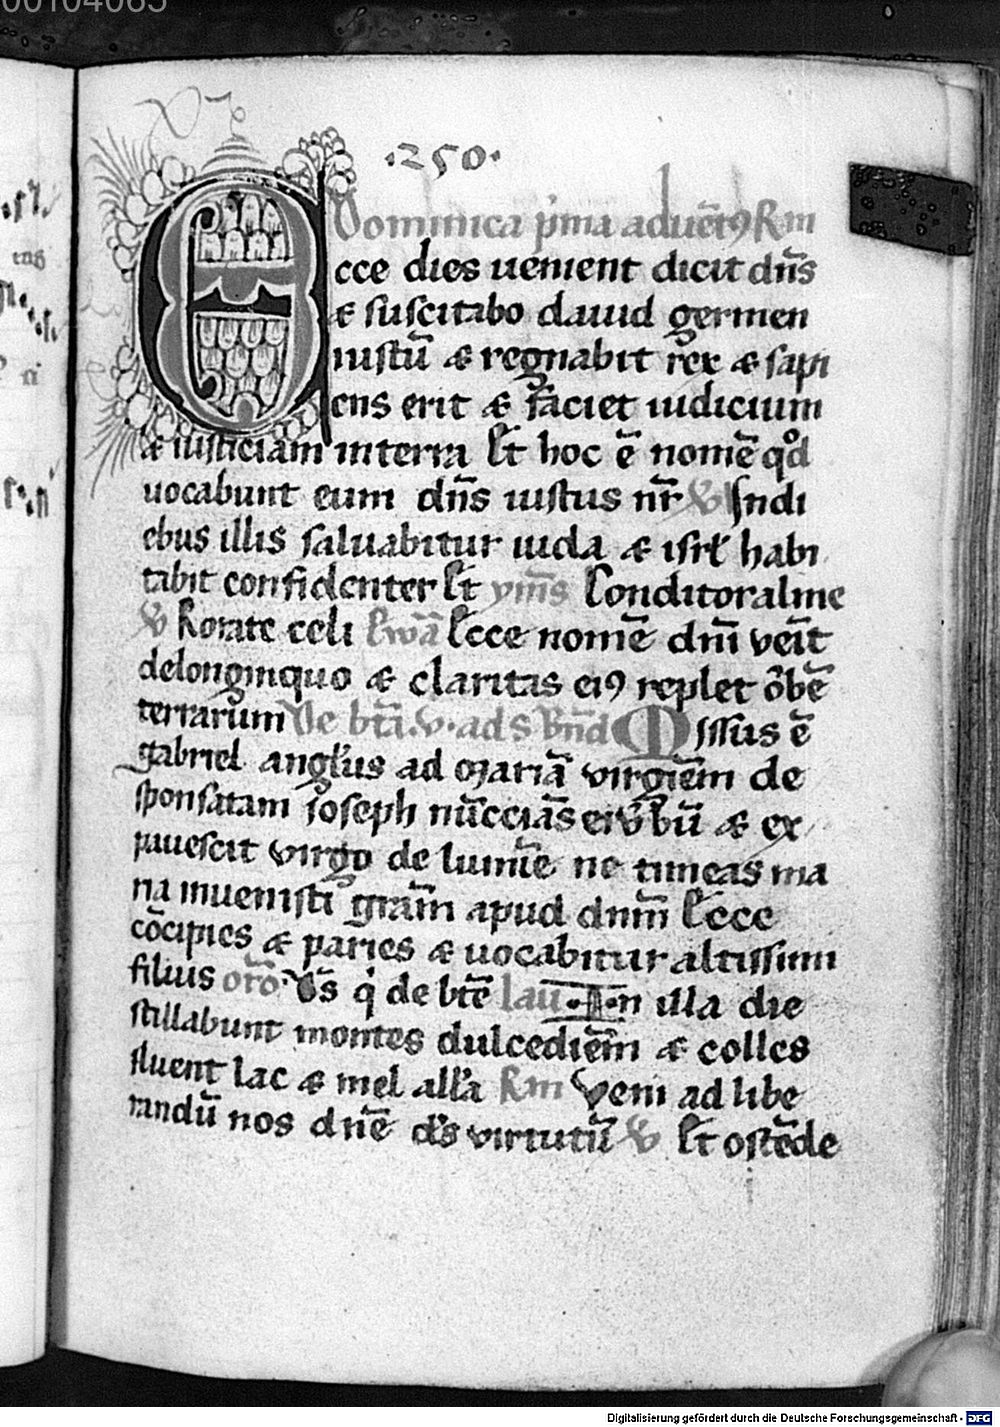 00104065
·250·
Dominica p̄ma aduēt9 Rm
Ecce dies uenient dicit dn̄s
& suscitabo dauid germen
iustū & regnabit rex & sapi
ens erit & faciet iudicium
& iusticiam interra Et hoc ē nomē qd̊
uocabunt eum dn̄s iustus nr̄ V Indi
ebus illis saluabitur iuda & isrł habi
tabit confidenter Et ymn̄s Conditoralme
V Rorate celi Ewā Ecce nomē dnī veīt
delonginquo & claritas ei9 replet ōbē
terrarum De btā.v.ad s Bn̄d Missus ē
gabriel angłus ad mariā virgiēm de
sponsatam ioseph nūcciās ei v̄bū & ex
pauescit virgo de lumīe ne timeas ma
ria inuenisti grām apud dnm̄ Ecce
cōcipies & paries & uocabitur altissimi
filius orō Ds̄ q̇ de btē lau ·In illa die
stillabunt montes dulcediēm & colles
fluent lac & mel alła Rm Veni ad libe
randū nos dn̄e ds̄ virtutū V Et ostēde
Digitalisierung gefördert durch die Deutsche Forschungsgemeinschaft - DFG